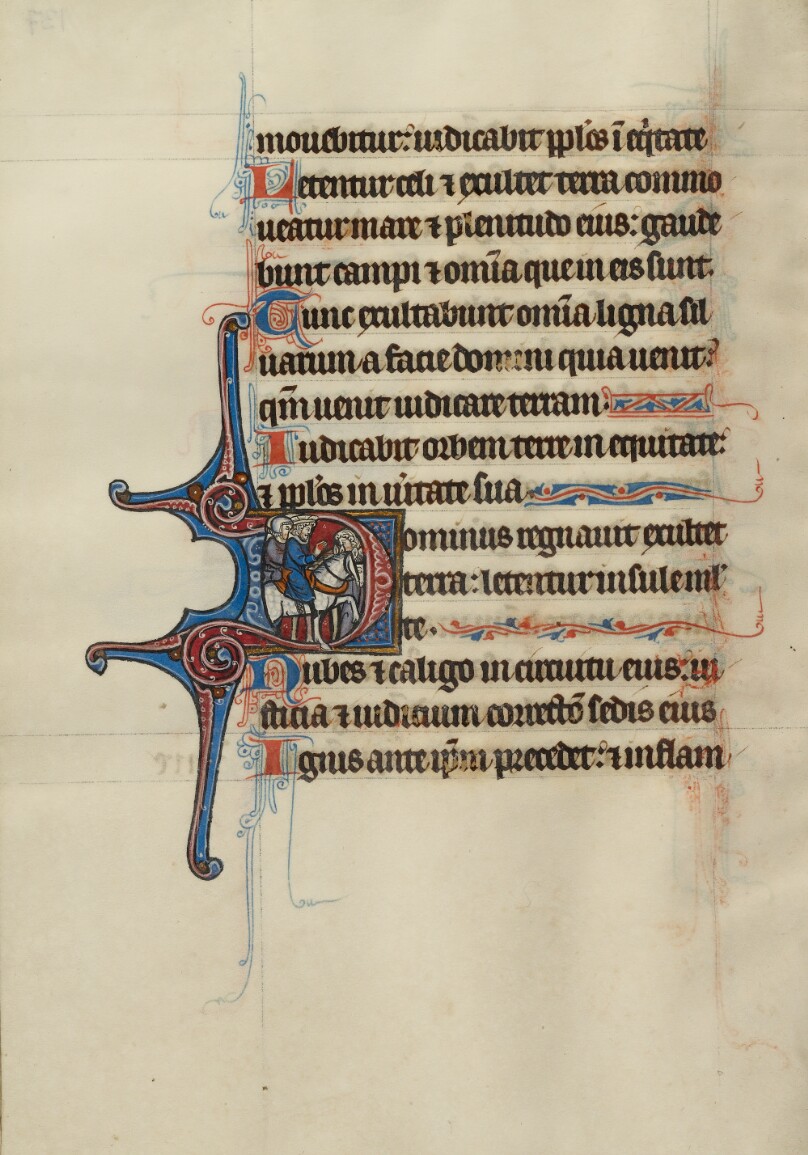 mouebitur: iudicabit pp̄los ī eq̇tate
Letentur celi ⁊ exultet terra commo
ueatur mare ⁊ plenitudo eius: gaude
bunt campi ⁊ om̄ia que in eis sunt.
Tunc exultabunt om̄ia ligna sil
uarum a facie domini quia uenit:
qm̄ uenit iudicare terram.
Iudicabit orbem terre in equitate:
⁊ pp̄los in ūitate sua
Dominus regnauit exultet
terra: letentur insule ml̓
te.
Nubes ⁊ caligo in circuitu eius: iu
sticia ⁊ iudicium correctō sedis eius
Ignis ante ip̄m precedet: ⁊ inflam